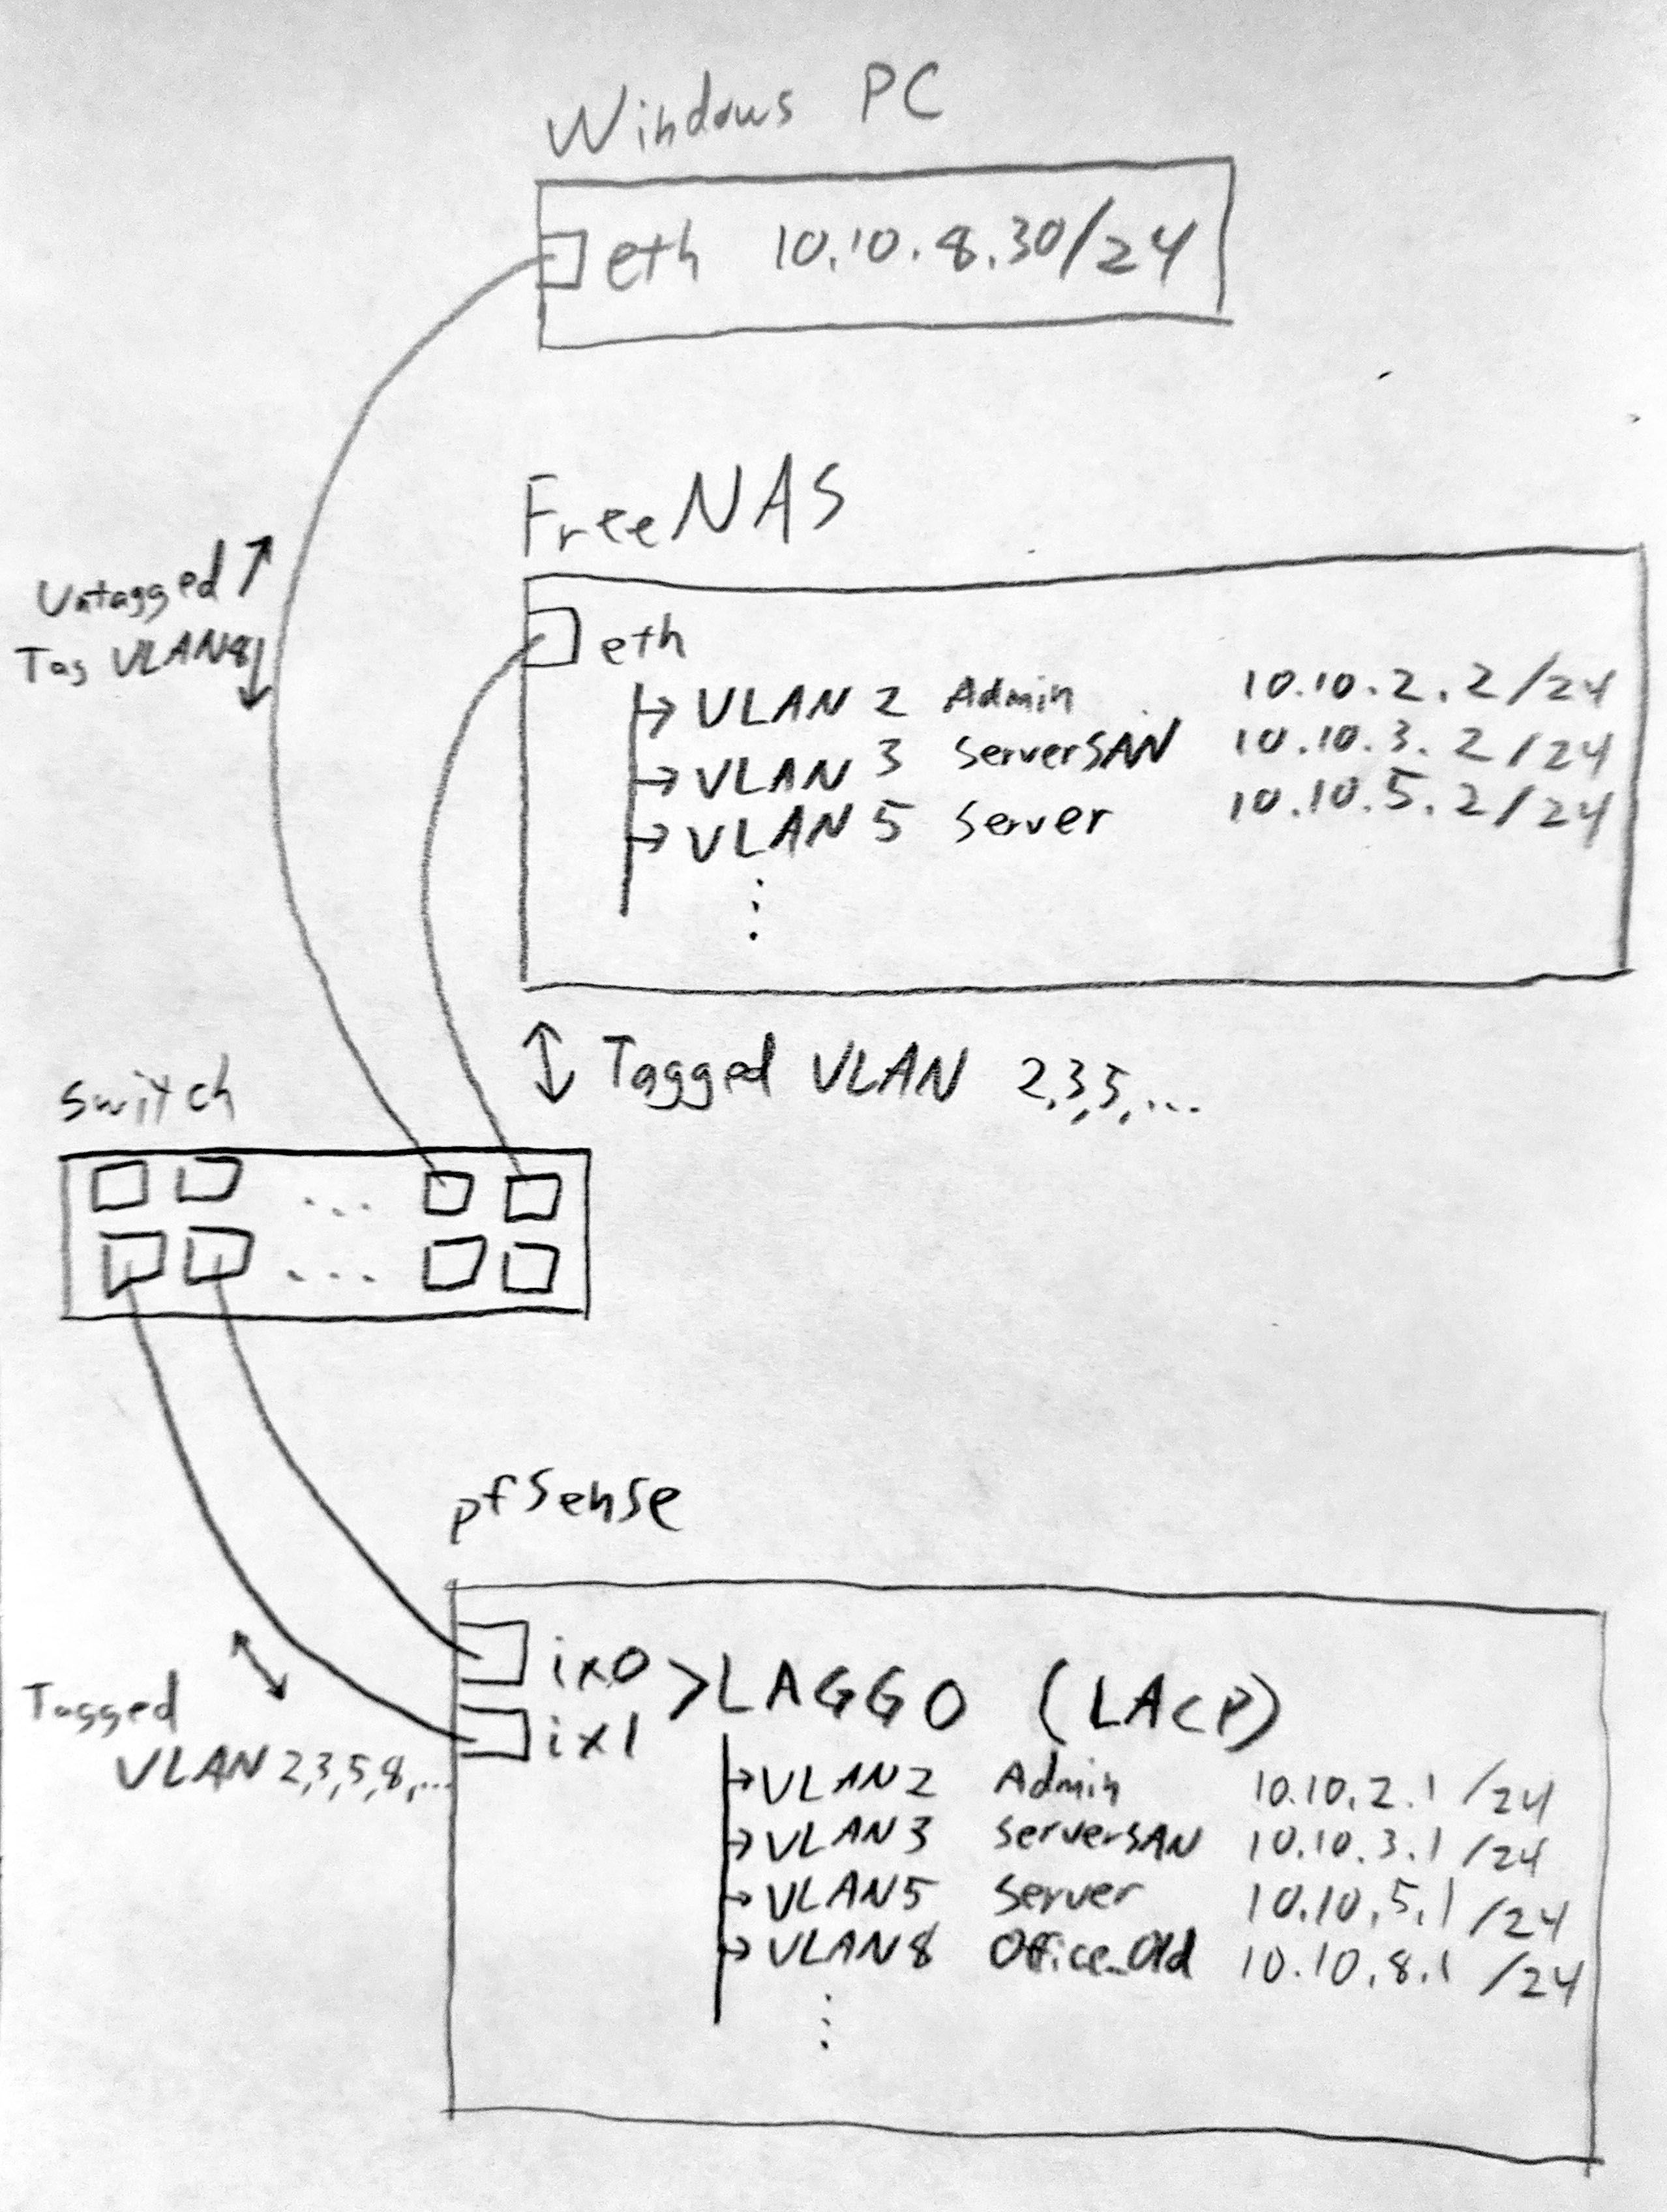 Windows PC
eth 10.10.8.30/24
FreeNAS
Untagged
Tag VLAN8
eth
VLAN 2 Admin 10.10.2.2/24
VLAN 3 ServerSAN 10.10.3.2/24
VLAN 5 Server 10.10.5.2/24
⋮
Tagged VLAN 2,3,5,...
Switch
...
...
pfSense
ix0 >LAGG0 (LACP)
ix1
Tagged
VLAN 2,3,5,8,...
VLAN2 Admin 10.10.2.1/24
VLAN3 ServerSAN 10.10.3.1/24
VLAN5 Server 10.10.5.1/24
VLAN8 Office_Old 10.10.8.1/24
⋮